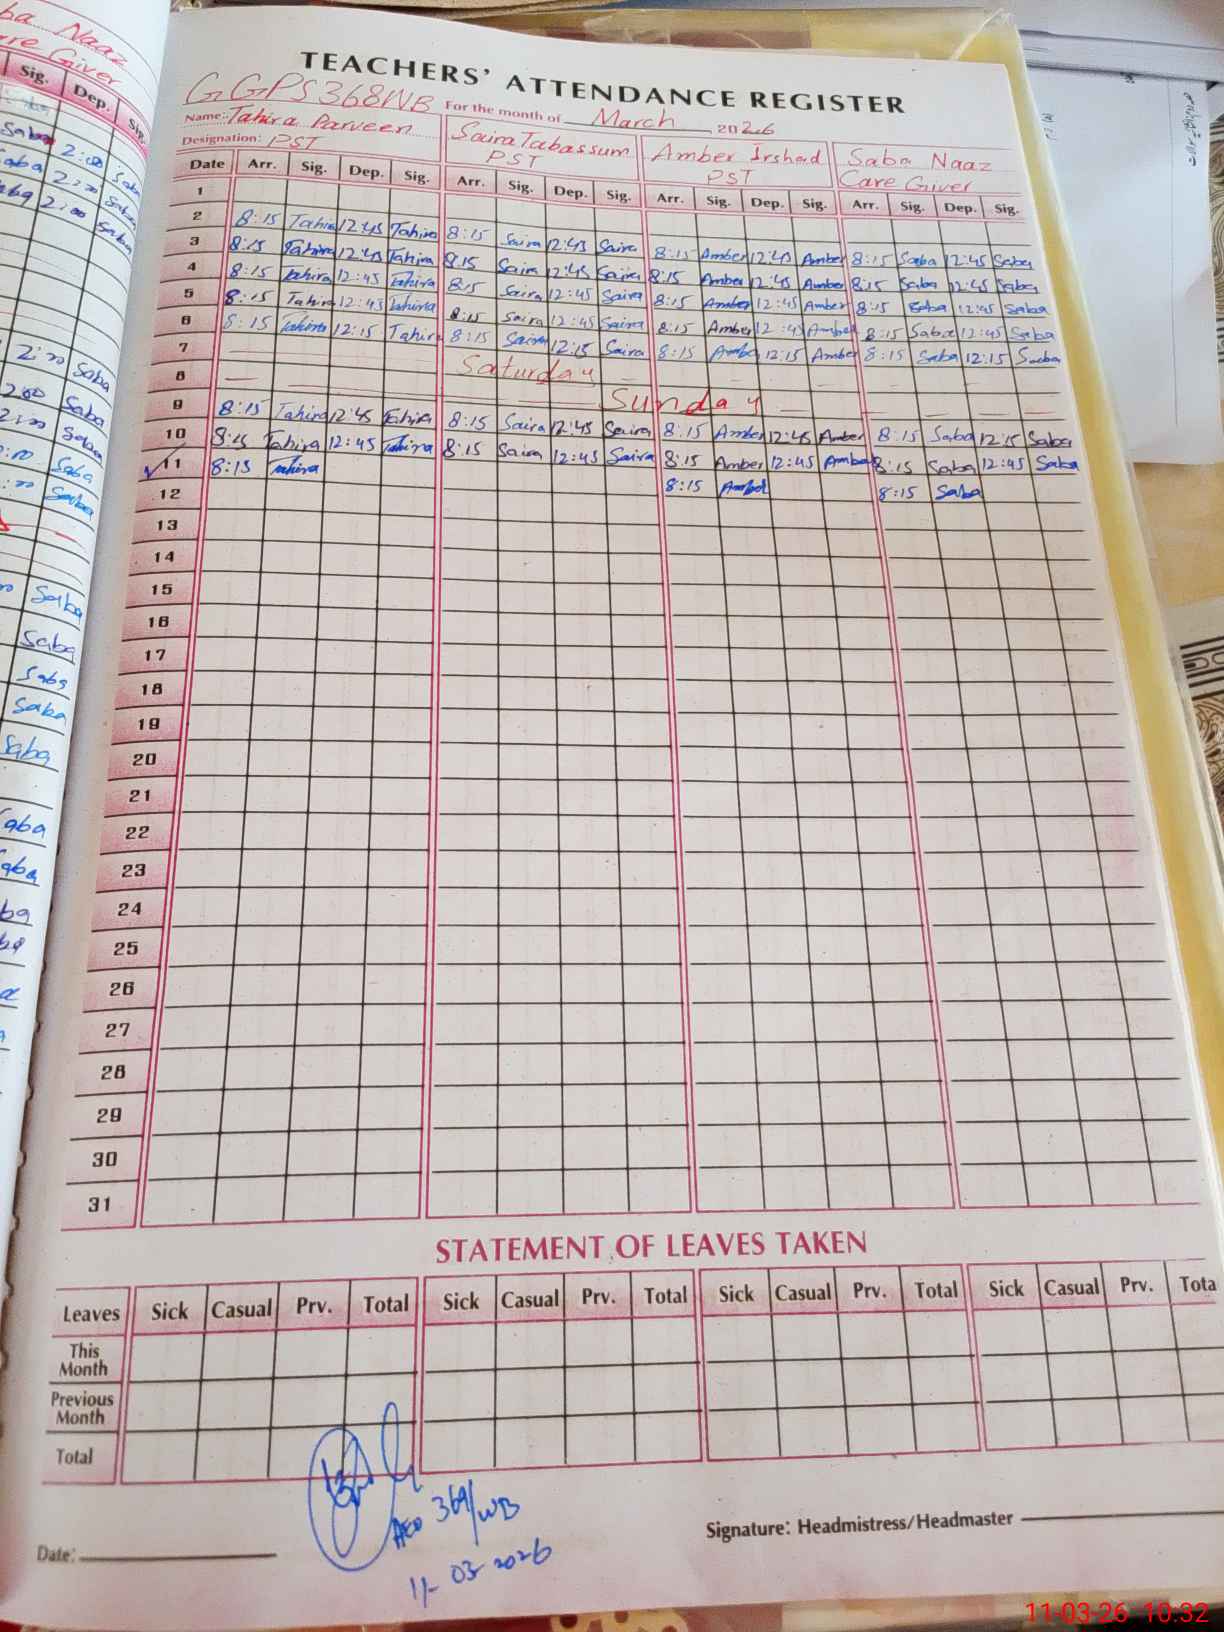 TEACHERS' ATTENDANCE REGISTER
GGPS368WB For the month of March 2026
Name:- Tahira Parveen Saira Tabassum Amber Irshad Saba Naaz
Designation: PST PST PST Care Giver
Date Arr. Sig. Dep. Sig. Arr. Sig. Dep. Sig. Arr. Sig. Dep. Sig. Arr. Sig. Dep. Sig.
1
2 8:15 Tahira 12:45 Tahira 8:15 Saira 12:45 Saira 8:15 Amber 12:45 Amber 8:15 Saba 12:45 Saba
3 8:15 Tahira 12:45 Tahira 8:15 Saira 12:45 Saira 8:15 Amber 12:45 Amber 8:15 Saba 12:45 Saba
4 8:15 Tahira 12:45 Tahira 8:15 Saira 12:45 Saira 8:15 Amber 12:45 Amber 8:15 Saba 12:45 Saba
5 8:15 Tahira 12:45 Tahira 8:15 Saira 12:45 Saira 8:15 Amber 12:45 Amber 8:15 Saba 12:45 Saba
6 8:15 Tahira 12:15 Tahira 8:15 Saira 12:15 Saira 8:15 Amber 12:15 Amber 8:15 Saba 12:15 Saba
7 Saturday
8 Sunday
9 8:15 Tahira 12:45 Tahira 8:15 Saira 12:45 Saira 8:15 Amber 12:45 Amber 8:15 Saba 12:15 Saba
10 8:15 Tahira 12:45 Tahira 8:15 Saira 12:45 Saira 8:15 Amber 12:45 Amber 8:15 Saba 12:45 Saba
11 8:15 Tahira 8:15 Amber 8:15 Saba
12
13
14
15
16
17
18
19
20
21
22
23
24
25
26
27
28
29
30
31
STATEMENT OF LEAVES TAKEN
Leaves Sick Casual Prv. Total Sick Casual Prv. Total Sick Casual Prv. Total Sick Casual Prv. Tota
This Month
Previous Month
Total
AEO 369/WB
11-03-2026
Date:
Signature: Headmistress/Headmaster
11-03-26 10:32